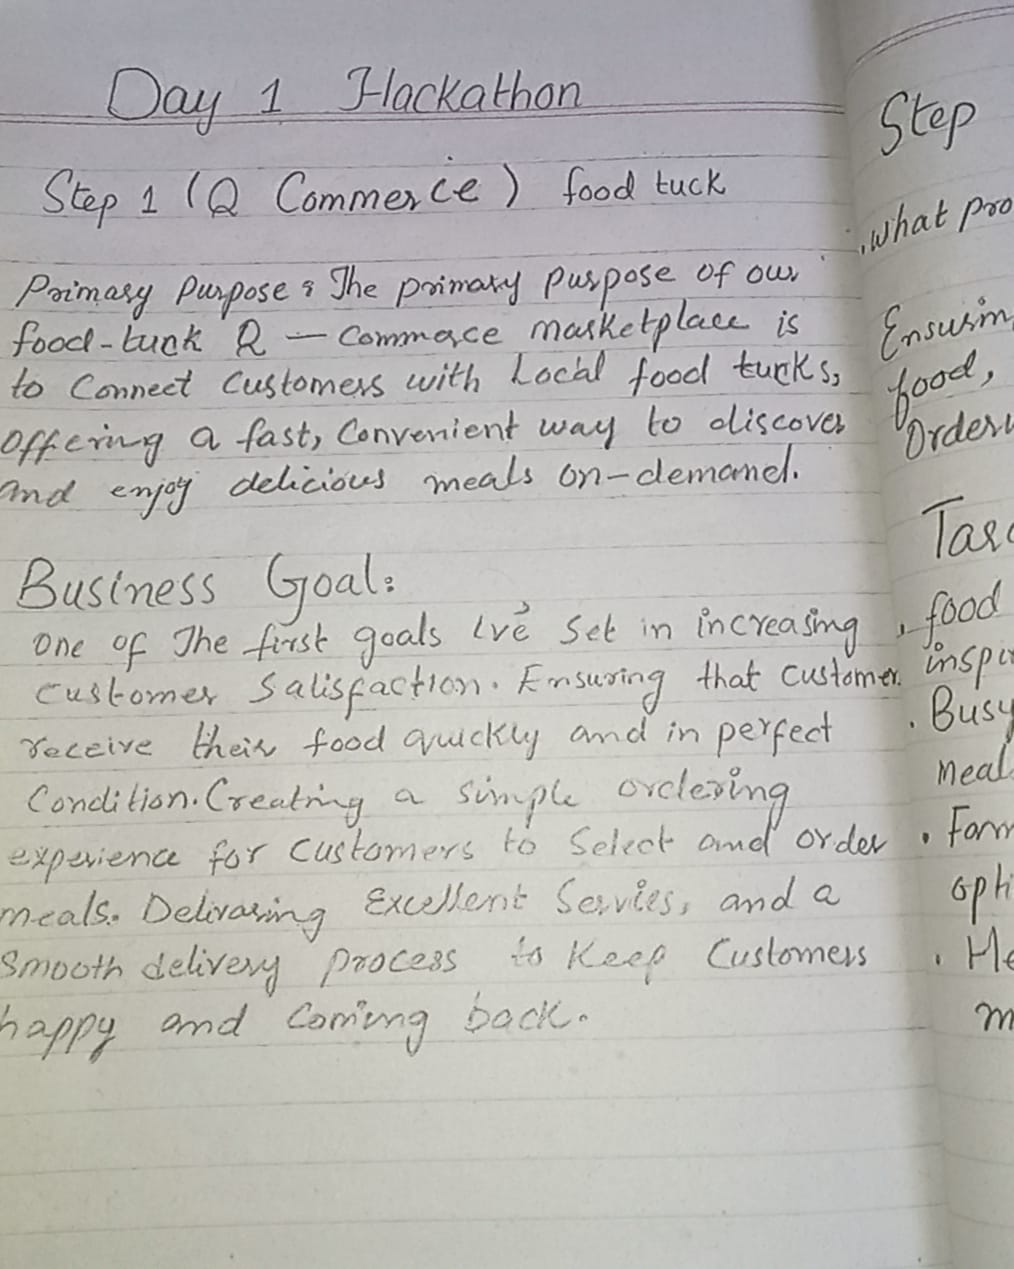 Day 1 Hackathon
Step 1 (Q Commerce) food tuck
Primary Purpose: The primary purpose of our
food-tuck Q - Commerce marketplace is
to Connect Customers with Local food tucks,
offering a fast, Convenient way to discover
and enjoy delicious meals on-demand.
Business Goal:
One of The first goals I've Set in increasing
Customer Satisfaction. Ensuring that customer
receive their food quickly and in perfect
Condition. Creating a simple ordering
experience for Customers to Select and order
meals. Delivaring Excellent Servies, and a
Smooth delivery process to Keep Customers
happy and Coming back.
Step
what pro
Ensurin
food,
Order
Tar
food
inspi
Busy
meal
opti
He
m